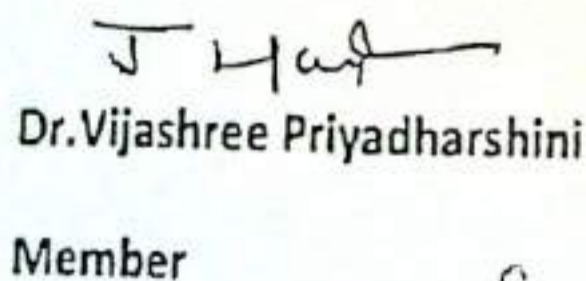 Dr.Vijashree Priyadharshini
Member